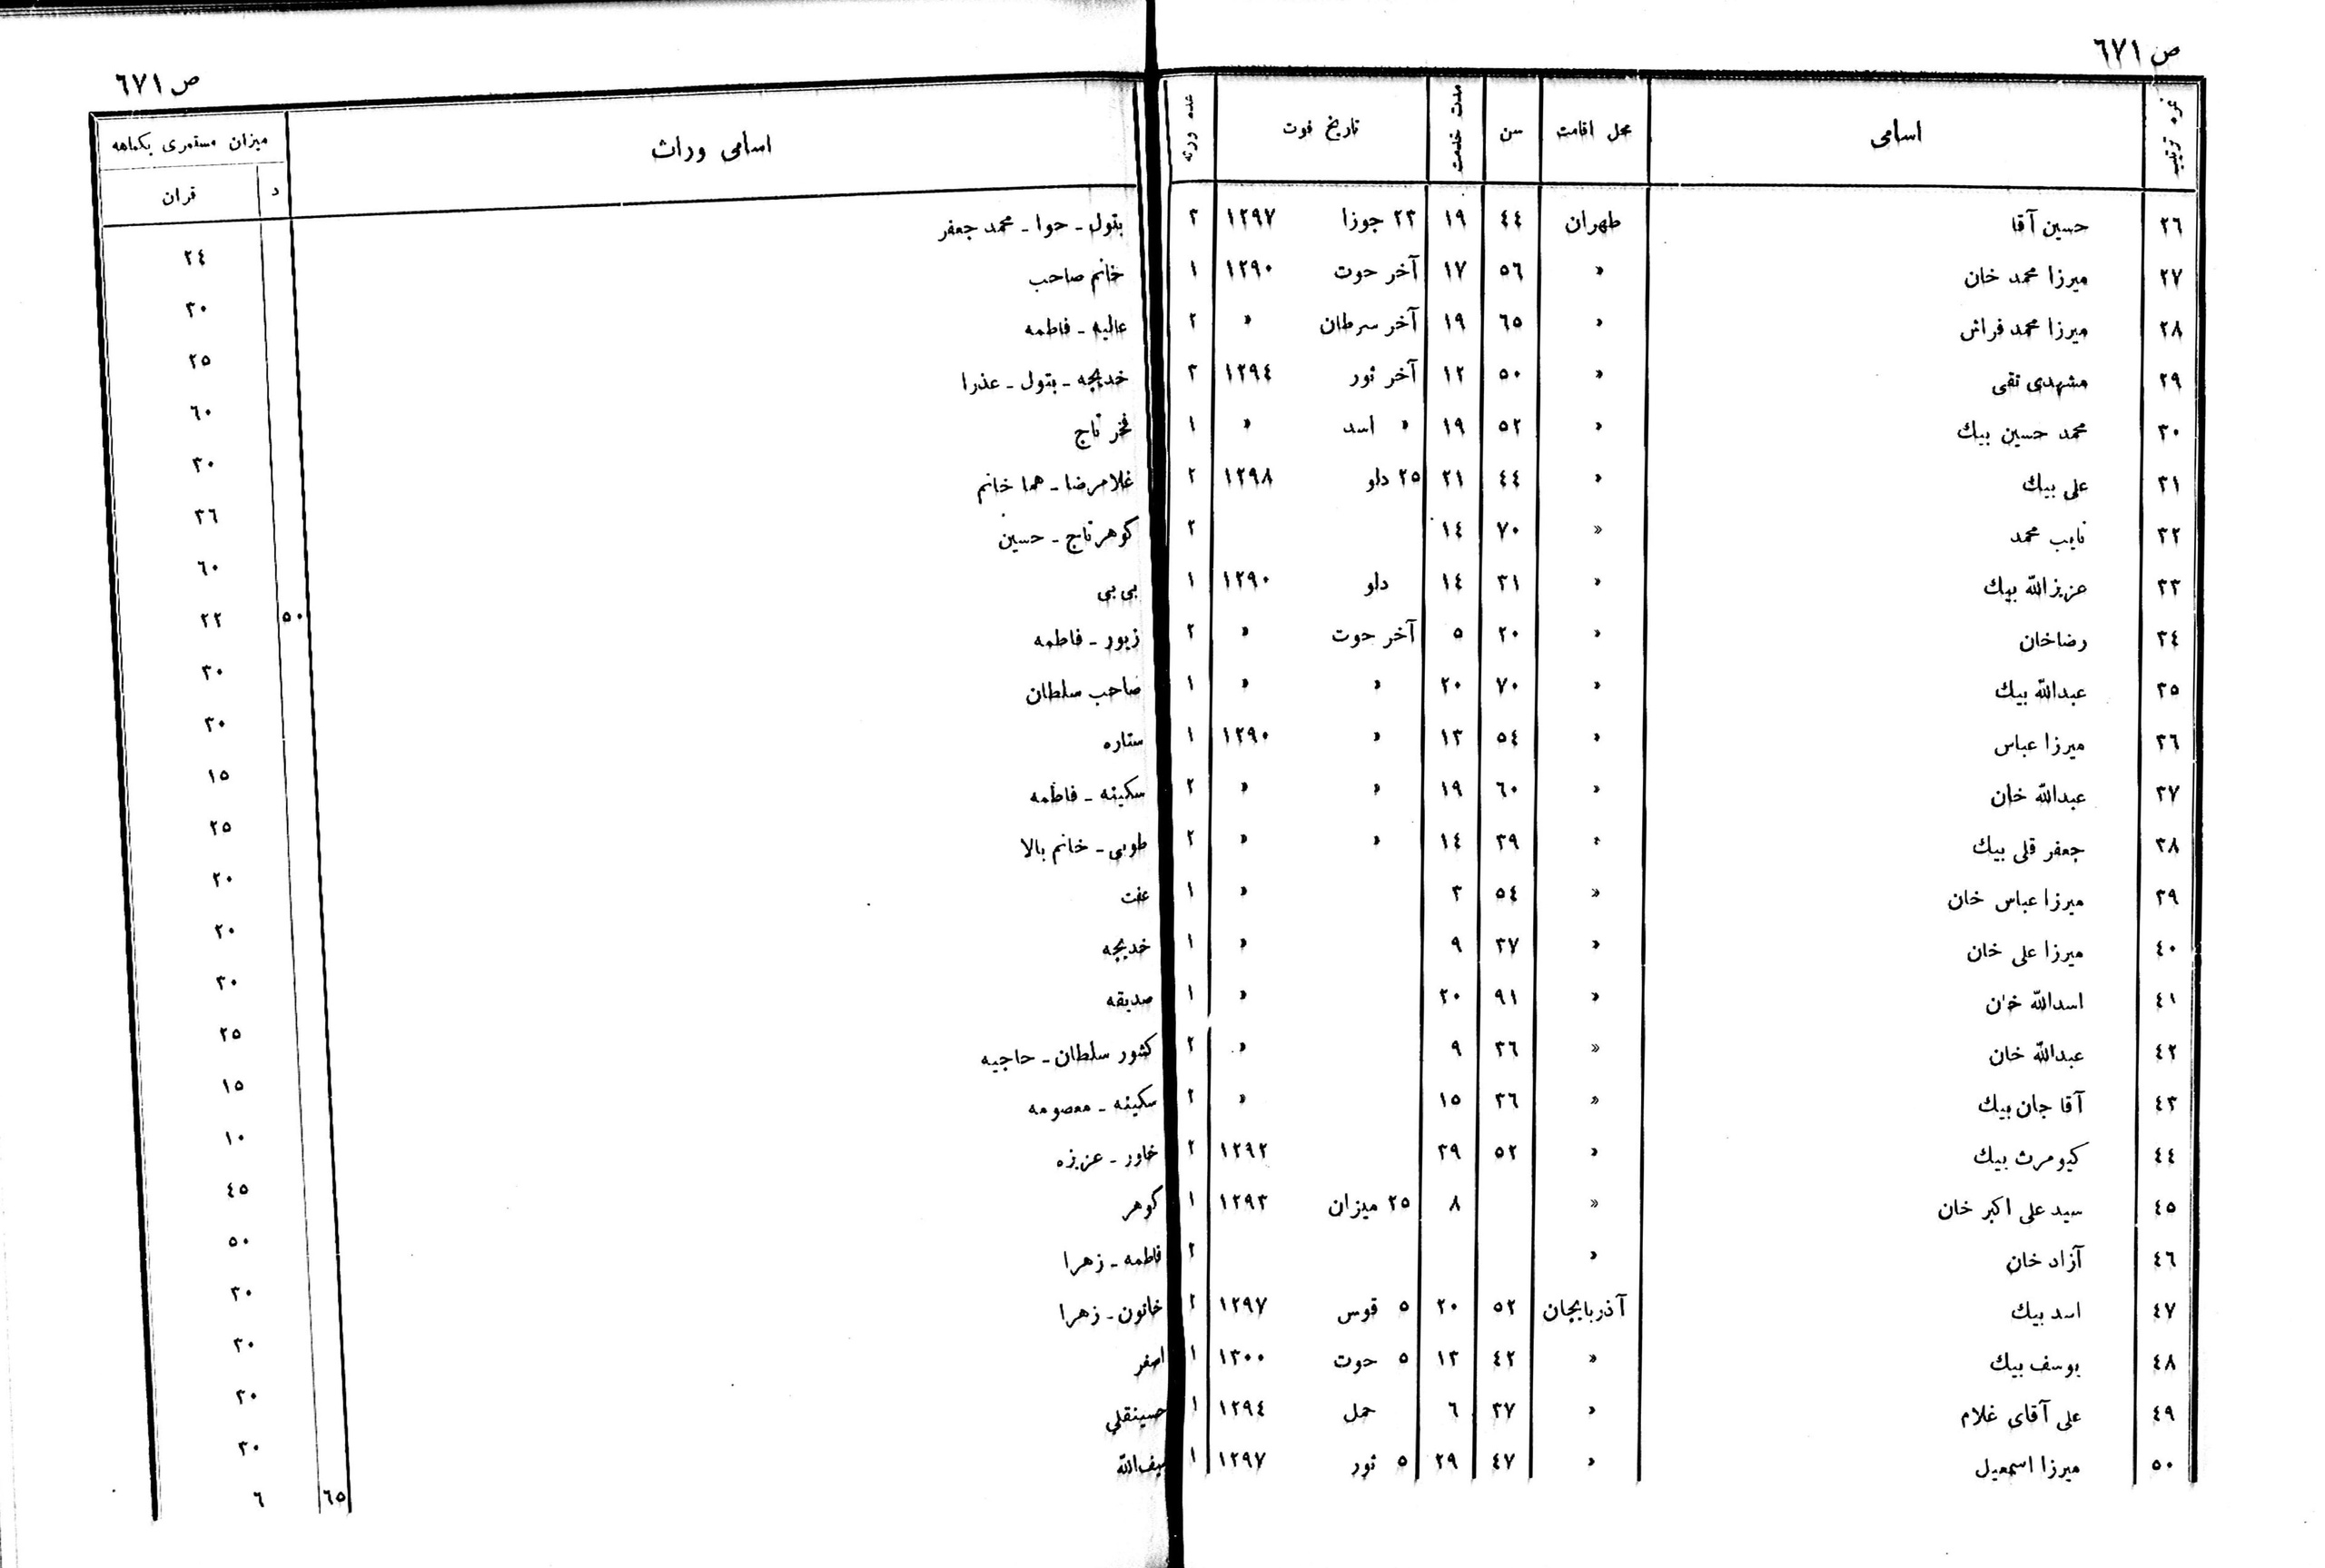 ص ٦٧١
نمره ترتیب | اسامی | محل اقامت | سن | مدت خدمت | تاریخ فوت | عده ورثه
٢٦ حسین آقا طهران ٤٤ ١٩ ٢٣ جوزا ١٢٩٧ ٣
٢٧ میرزا محمد خان » ٥٦ ١٧ آخر حوت ١٢٩٠ ١
٢٨ میرزا محمد فراش » ٦٥ ١٩ آخر سرطان » ٢
٢٩ مشهدی تقی » ٥٠ ١٢ آخر ثور ١٢٩٤ ٣
٣٠ محمد حسین بیك » ٥٢ ١٩ » اسد » ١
٣١ علی بیك » ٤٤ ٢١ ٢٥ دلو ١٢٩٨ ٢
٣٢ نایب محمد » ٧٠ ١٤ ٢
٣٣ عزیزالله بیك » ٣١ ١٤ دلو ١٢٩٠ ١
٣٤ رضاخان » ٢٠ ٥ آخر حوت » ٢
٣٥ عبدالله بیك » ٧٠ ٢٠ » » ١
٣٦ میرزا عباس » ٥٤ ١٣ » ١٢٩٠ ١
٣٧ عبدالله خان » ٦٠ ١٩ » » ٢
٣٨ جعفر قلی بیك » ٣٩ ١٤ » » ٢
٣٩ میرزا عباس خان » ٥٤ ٣ » ١
٤٠ میرزا علی خان » ٣٧ ٩ » ١
٤١ اسدالله خان » ٩١ ٢٠ » ١
٤٢ عبدالله خان » ٣٦ ٩ » ٢
٤٣ آقا جان بیك » ٣٦ ١٥ » ٢
٤٤ کیومرث بیك » ٥٢ ٣٩ ١٢٩٢ ٢
٤٥ سید علی اکبر خان » ٨ ٢٥ میزان ١٢٩٣ ١
٤٦ آزاد خان » ٢
٤٧ اسد بیك آذربایجان ٥٢ ٢٠ ٥ قوس ١٢٩٧ ٢
٤٨ یوسف بیك » ٤٢ ١٣ ٥ حوت ١٣٠٠ ١
٤٩ علی آقای غلام » ٣٧ ٦ حمل ١٢٩٤ ١
٥٠ میرزا اسمعیل » ٤٧ ٢٩ ٥ ثور ١٢٩٧ ١
ص ٦٧١
اسامی وراث | میزان مستمری یکماهه
د | قران
بتول ـ حوا ـ محمد جعفر ٢٤
خانم صاحب ٣٠
عالیه ـ فاطمه ٢٥
خدیجه ـ بتول ـ عذرا ٦٠
فخر تاج ٣٠
غلامرضا ـ هما خانم ٣٦
کوهر تاج ـ حسین ٦٠
بی بی ٥٠ ٢٢
زیور ـ فاطمه ٣٠
صاحب سلطان ٣٠
ستاره ١٥
سکینه ـ فاطمه ٢٥
طوبی ـ خانم بالا ٢٠
عفت ٢٠
خدیجه ٣٠
صدیقه ٢٥
کشور سلطان ـ حاجیه ١٥
سکینه ـ معصومه ١٠
خاور ـ عزیزه ٤٥
کوهر ٥٠
فاطمه ـ زهرا ٣٠
خاتون ـ زهرا ٣٠
اصغر ٢٠
حسینقلی ٣٠
سیف‌الله ٦٥ ٦